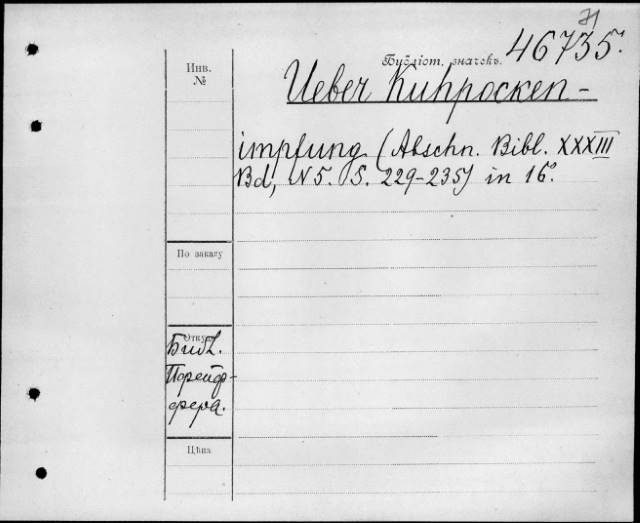 71
Бубліот. значекъ. 46735.
Инв.
№
Ueber Kuhpocken-
impfung (Abschn. Bibl. XXXIII
Bd, N5. S. 229-235) in 16°.
По заказу
Откуда
Библ.
Цѣна